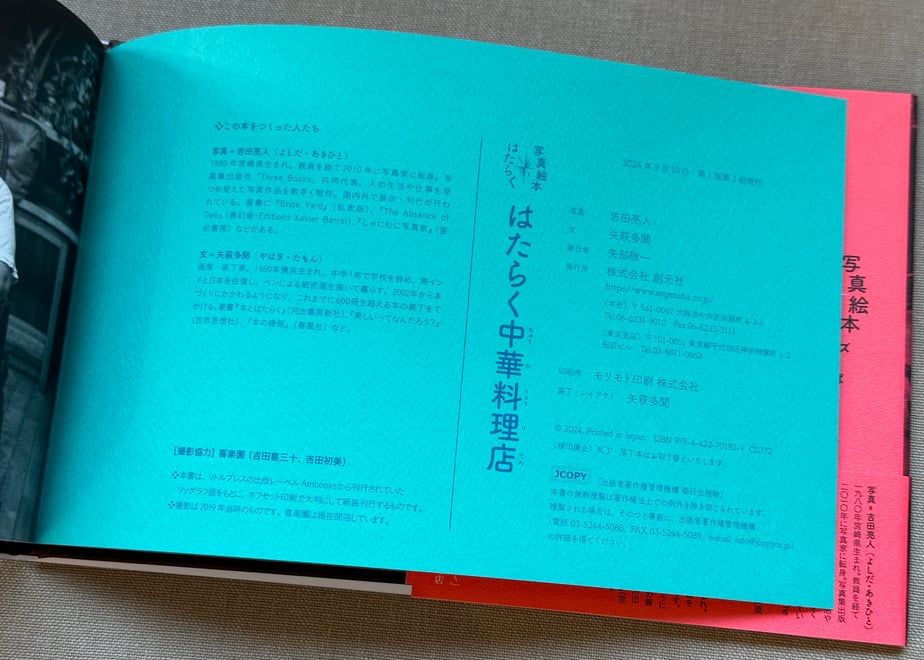 ❖この本をつくった人たち
写真=吉田亮人(よしだ・あきひと)
1980年宮崎県生まれ。教員を経て2010年に写真家に転身。写
真集出版社「Three Books」共同代表。人の生活や仕事を見
つめ捉えた写真作品を数多く制作。国内外で展示・刊行が行わ
れている。著書に『Brick Yard』(私家版)、『The Absence of
Two』(青幻舎・Editions Xavier Barral)、『しゃにむに写真家』(亜
紀書房)などがある。
文=矢萩多聞(やはぎ・たもん)
画家・装丁家。1980年横浜生まれ。中学1年で学校を辞め、南イン
ドと日本を往復し、ペンによる細密画を描いて暮らす。2002年から本
づくりにかかわるようになり、これまでに600冊を超える本の装丁をて
がける。著書『本とはたらく』(河出書房新社)、『美しいってなんだろう?』
(世界思想社)、『本の縁側』(春風社)など。
[撮影協力]喜楽園(吉田喜三十、吉田初美)
❖本書は、リトルプレスの出版レーベルAmbooksから刊行されていた
リソグラフ版をもとに、オフセット印刷で大判にして新装刊行するものです。
❖撮影は2019年当時のものです。喜楽園は現在閉店しています。
写真絵本
はたらく
はたらく中華料理店
ちゅう か りょう り てん
2024年9月10日 第1版第1刷発行
写真 吉田亮人
文 矢萩多聞
発行者 矢部敬一
発行所 株式会社 創元社
https://www.sogensha.co.jp/
〈本社〉〒541-0047 大阪市中央区淡路町4-3-6
Tel.06-6231-9010 Fax.06-6233-3111
〈東京支店〉〒101-0051 東京都千代田区神田神保町1-2
田辺ビル Tel.03-6811-0662
印刷所 モリモト印刷 株式会社
装丁・レイアウト 矢萩多聞
© 2024, Printed in Japan ISBN 978-4-422-70192-9 C0372
〈検印廃止〉乱丁・落丁本はお取り替えいたします。
JCOPY 〈出版者著作権管理機構 委託出版物〉
本書の無断複製は著作権法上での例外を除き禁じられています。
複製される場合は、そのつど事前に、出版者著作権管理機構
(電話 03-5244-5088、FAX 03-5244-5089、e-mail: info@jcopy.or.jp)
の許諾を得てください。
写真絵本
ズ
写真=吉田亮人(よしだ・あきひと)
一九八〇年宮崎県生まれ。教員を経て
二〇一〇年に写真家に転身。写真集出版